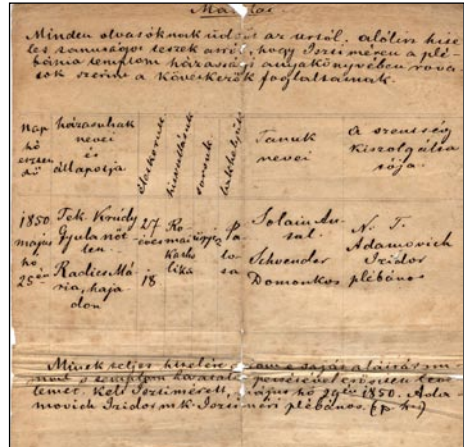 Másolat
Minden olvasóknak üdvöt az Urtól. alólirt hite-
les tanuságot teszek arról, hogy Isztiméren a plé-
bánia templom házassági anyakönyvében rova-
tok szerint a következők foglaltatnak.
Nap hó eszten dő
házasulnak nevei és állapotja
életkoruk
hitvallásuk
sorsuk
lakhelyük
Tanuk nevei
a szentség kiszolgálta tója
1850 május hó 25én
Tek. Krúdy Gyula nőt len. Radics Má ria, haja don
27 éves 18
Ro mai katho lika
Pa lo ta
Solain An tal. Schvender Domonkos
N. T. Adamovich Izidor plébános
Minek teljes hiteléül saját aláirásom
mint a templom
temet. Kelt Isztimérett, május hó 29én 1850. Ada-
movich Izidor mk. Isztiméri plébános. (p. h.)